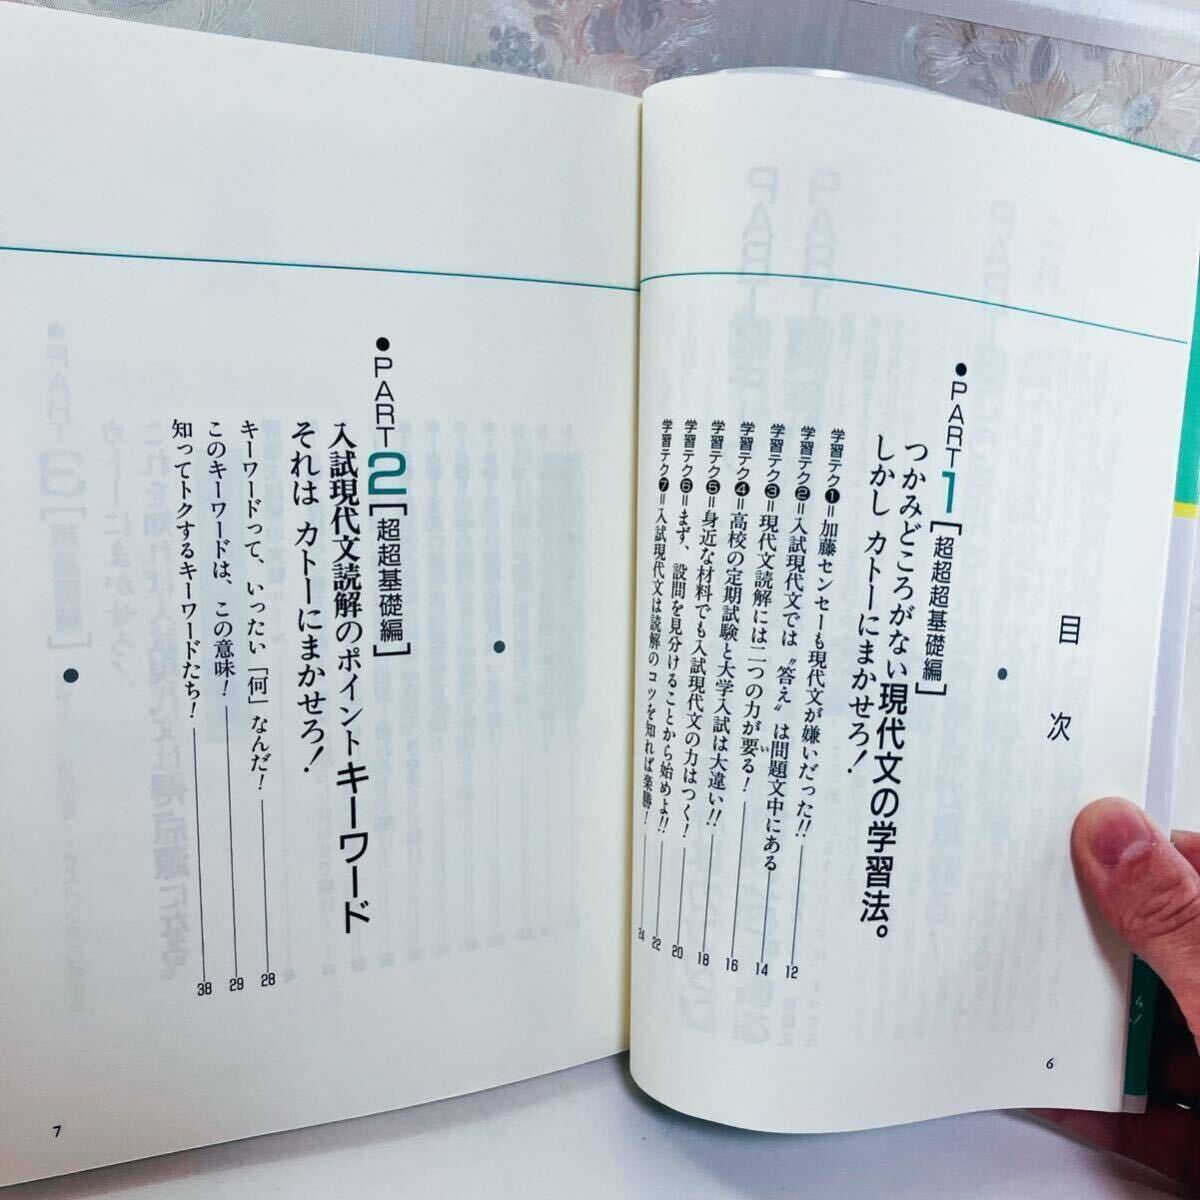 目次
●PART1[超超超基礎編]
つかみどころがない現代文の学習法。
しかし カトーにまかせろ!
学習テク❶=加藤センセーも現代文が嫌いだった!! 12
学習テク❷=入試現代文では〝答え〟は問題文中にある 14
学習テク❸=現代文読解には二つの力が要(い)る! 16
学習テク❹=高校の定期試験と大学入試は大違い!! 18
学習テク❺=身近な材料でも入試現代文の力はつく! 20
学習テク❻=まず、設問を見分けることから始めよ!! 22
学習テク❼=入試現代文は読解のコツを知れば楽勝! 24
6
●PART2[超超基礎編]
入試現代文読解のポイントキーワード
それは カトーにまかせろ!
キーワードって、いったい「何」なんだ! 28
このキーワードは、この意味! 29
知ってトクするキーワードたち! 38
7